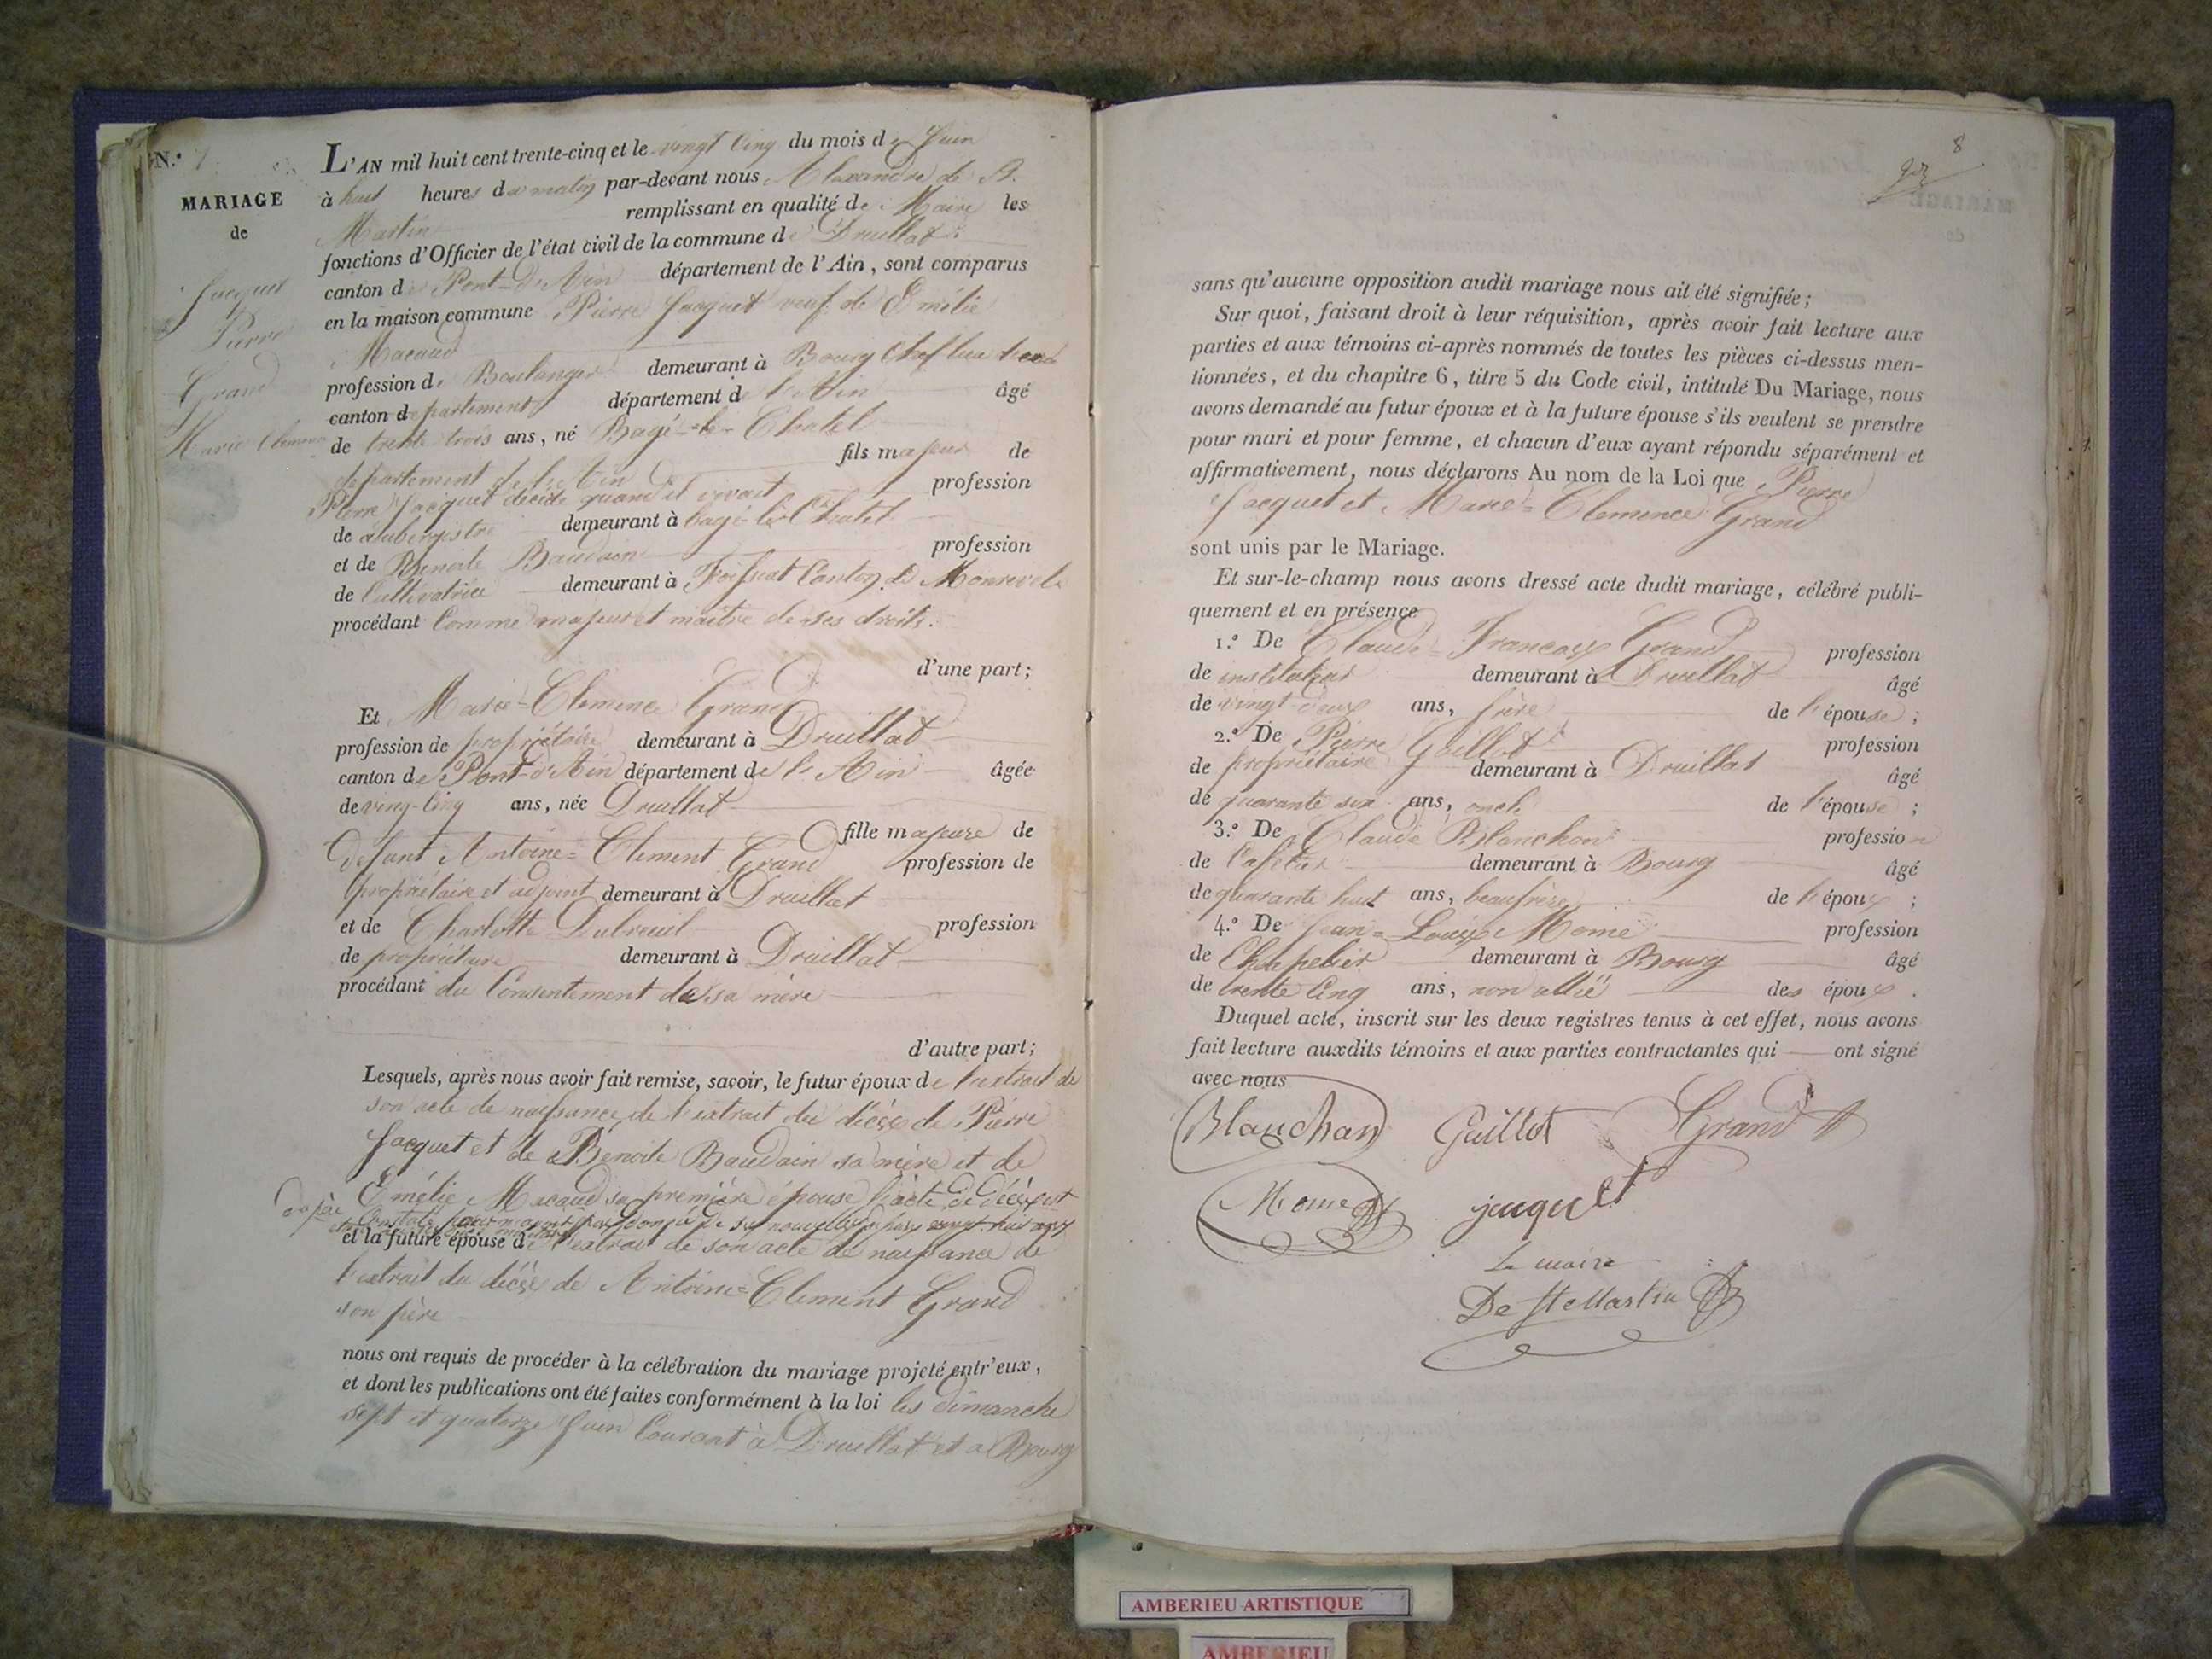 N.º 7
MARIAGE
de
Jacquet
Pierre
Grand
Marie Clemence
L'AN mil huit cent trente-cinq et le vingt cinq du mois de Juin
à huit heures du matin par-devant nous Alexandre de St.
Martin remplissant en qualité de Maire les
fonctions d'Officier de l'état civil de la commune de Druillat
canton de Pont-d'Ain département de l'Ain, sont comparus
en la maison commune Pierre Jacquet veuf de Emélie
Macaud
profession de Boulanger demeurant à Bourg Chef lieu
canton departement département de l'Ain âgé
de trente trois ans, né Bagé-le-Chatel
departement de l'Ain fils majeur de
Pierre Jacquet décédé quand il vivait profession
de aubergiste demeurant à bagé le Chatel
et de Benoite Baudain profession
de Cultivatrice demeurant à Foissiat Canton de Monrevel
procédant Comme majeur et maitre de ses droits.
d'une part;
Et Marie-Clemence Grand
profession de propriétaire demeurant à Druillat
canton de Pont-d'Ain département de l'Ain âgée
de ving-cinq ans, née Druillat
fille majeure de
defunt Antoine-Clement Grand profession de
propriétaire et adjoint demeurant à Druillat
et de Charlotte Dubreuil profession
de propriétaire demeurant à Druillat
procédant du Consentement de sa mère
d'autre part;
Lesquels, après nous avoir fait remise, savoir, le futur époux de l'extrait de
son acte de naissance, de l'extrait du décès de Pierre
Jacquet et de Benoite Baudain sa mère et de
Emélie Macaud sa première épouse l'acte de décès
et la future épouse de l'extrait de son acte de naissance de
l'extrait du décès de Antoine-Clement Grand
son père
nous ont requis de procéder à la célébration du mariage projeté entr'eux,
et dont les publications ont été faites conformément à la loi les dimanche
sept et quatorze Juin Courant à Druillat et a Bourg
8
sans qu'aucune opposition audit mariage nous ait été signifiée;
Sur quoi, faisant droit à leur réquisition, après avoir fait lecture aux
parties et aux témoins ci-après nommés de toutes les pièces ci-dessus men-
tionnées, et du chapitre 6, titre 5 du Code civil, intitulé Du Mariage, nous
avons demandé au futur époux et à la future épouse s'ils veulent se prendre
pour mari et pour femme, et chacun d'eux ayant répondu séparément et
affirmativement, nous déclarons Au nom de la Loi que Pierre
Jacquet et Marie-Clemence Grand
sont unis par le Mariage.
Et sur-le-champ nous avons dressé acte dudit mariage, célébré publi-
quement et en présence
1.º De Claude-Francois Grand profession
de instituteur demeurant à Druillat âgé
de vingt-deux ans, frère de l'épouse;
2.º De Pierre Guillot profession
de propriétaire demeurant à Druillat âgé
de quarante six ans, oncle de l'épouse;
3.º De Claude Blanchon profession
de Cafetier demeurant à Bourg âgé
de quarante huit ans, beaufrère de l'époux;
4.º De Jean-Louis Mome profession
de Chapelier demeurant à Bourg âgé
de trente Cinq ans, non allié des époux.
Duquel acte, inscrit sur les deux registres tenus à cet effet, nous avons
fait lecture auxdits témoins et aux parties contractantes qui ont signé
avec nous
Blanchon Guillot Grand
Mome jacquet
Le maire
De St Martin
AMBERIEU ARTISTIQUE
AMBERIEU